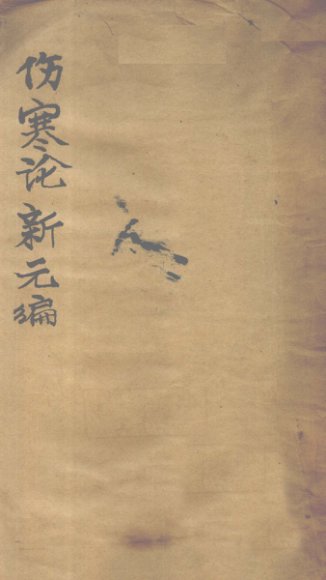 伤寒论新元编